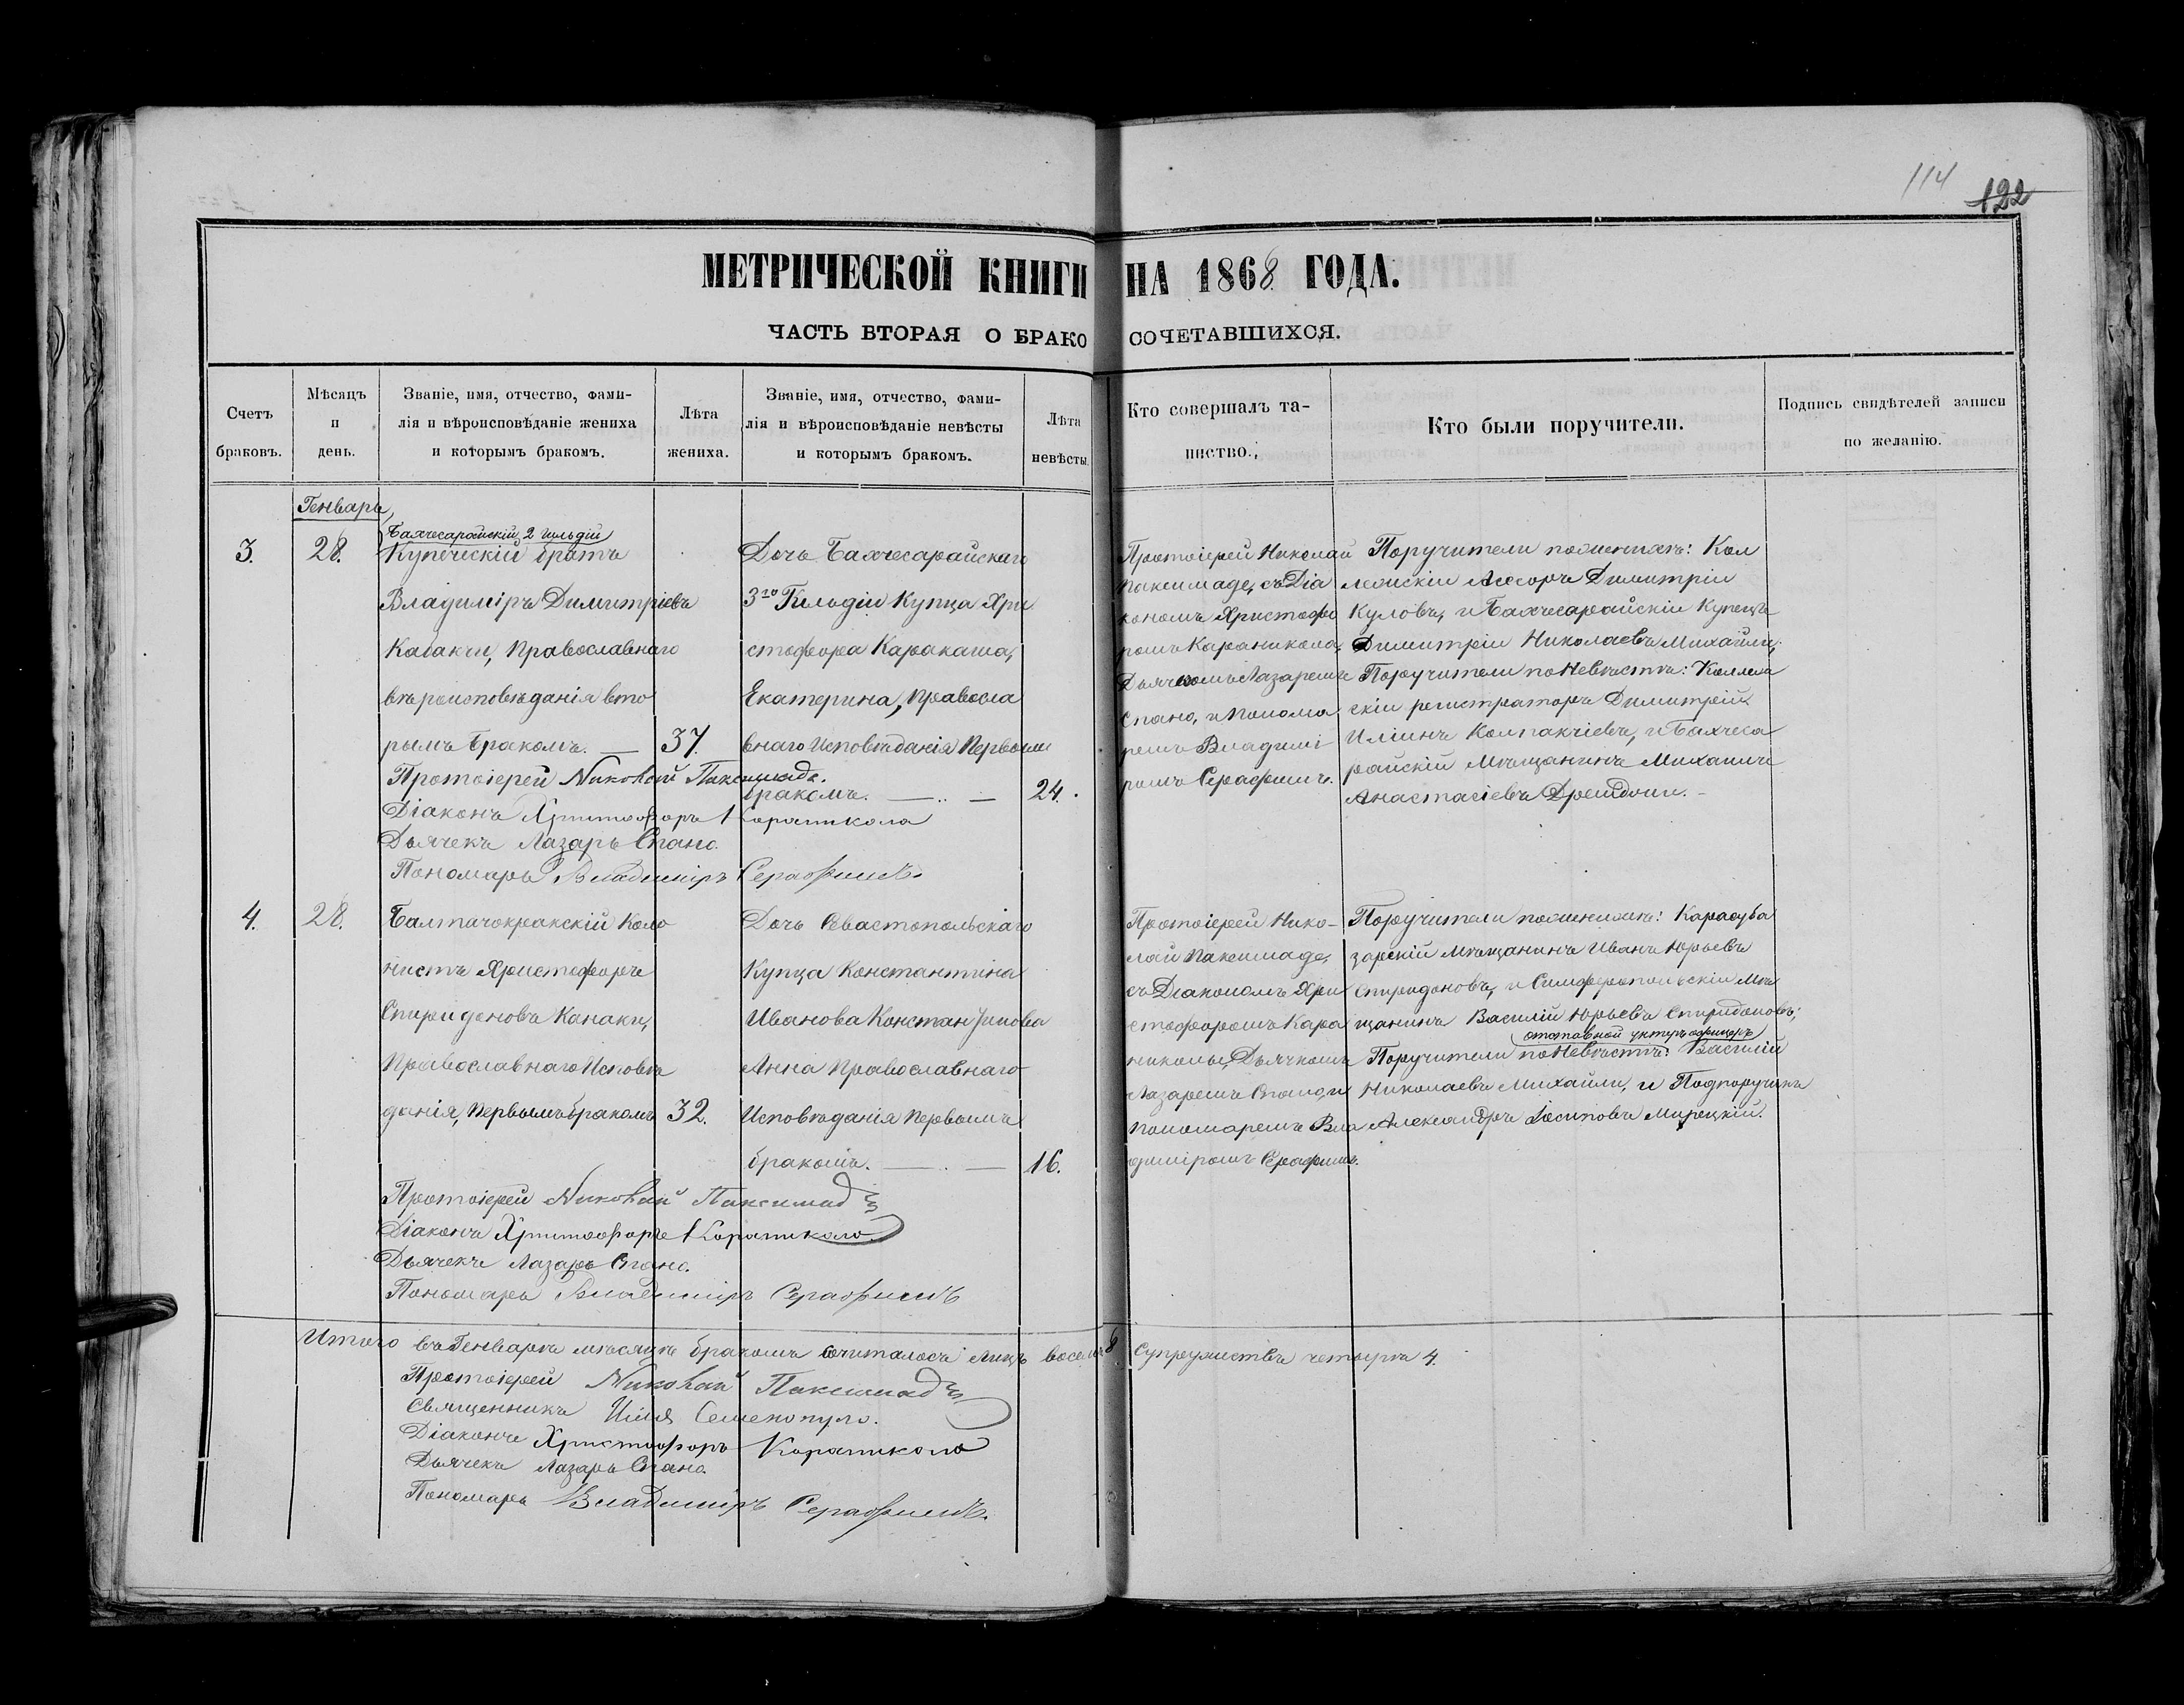 114
122
МЕТРИЧЕСКОЙ КНИГИ НА 1868 ГОДА.
ЧАСТЬ ВТОРАЯ О БРАКОСОЧЕТАВШИХСЯ.
Счетъ браковъ.
Мѣсяцъ и день.
Званіе, имя, отчество, фами-
лія и вѣроисповѣданіе жениха
и которымъ бракомъ.
Лѣта жениха.
Званіе, имя, отчество, фами-
лія и вѣроисповѣданіе невѣсты
и которымъ бракомъ.
Лѣта невѣсты.
Кто совершалъ та-
инство.
Кто были поручители.
Подпись свидѣтелей записи
по желанію.
Генварь,
3.
28.
Бахчесарайскій 2 гильдіи
Купеческій братъ
Владиміръ Димитріевъ
Кабакчи, Православнаго
вѣроисповѣданія вто
рымъ бракомъ. —
37.
Дочь Бахчесарайскаго
3го Гильдіи Купца Хри
стофора Каракаша,
Екатерина, Правосла
внаго Исповѣданія Первымъ
бракомъ. —
24.
Протоіерей Николай
Паксимаде, съ Діа
кономъ Христофо
ромъ Караникола,
Дьячкомъ Лазаремъ
Спано, и Понома
ремъ Владимі
ромъ Серафимъ.
Поручители по женихѣ: Кол
лежскій Ассесоръ Димитрій
Куловъ, и Бахчесарайскій Купецъ
Димитрій Николаевъ Михайли;
Поручители по Невѣстѣ: Коллеж
скій регистраторъ Димитрій
Иліинъ Колпакчіевъ, и Бахчеса
райскій Мѣщанинъ Михаилъ
Анастасіевъ
Протоіерей Николай Паксимаде.
Діаконъ Христофоръ Караникола
Дьячекъ Лазарь Спано.
Пономарь Владиміръ Серафимъ.
4.
28.
Балтачокракскій Коло
нистъ Христофоръ
Спиридоновъ Канаки,
Православнаго Исповѣ
данія, Первымъ бракомъ
32.
Дочь Севастопольскаго
Купца Константина
Иванова Константинова
Анна Православнаго
Исповѣданія Первымъ
бракомъ. —
16.
Протоіерей Нико-
лай Паксимаде,
съ Діакономъ Хри
стофоромъ Кара
николы, Дьячкомъ
Лазаремъ Спано, и
пономаремъ Вла
диміромъ Серафимъ.
Поручители по женихѣ: Карасуба
зарскій Мѣщанинъ Иванъ Юрьевъ
Спиридоновъ, и Симферопольскій Мѣ
щанинъ Василій Юрьевъ Спиридоновъ;
отставной унтеръ офицеръ
Поручители по Невѣстѣ: Василій
Николаевъ Михайли, и Подпоручикъ
Александръ Іосиповъ Мирецкій.
Протоіерей Николай Паксимад
Діаконъ Христофоръ Караникола
Дьячекъ Лазарь Спано.
Пономарь Владиміръ Серафимъ
Итого въ Генварѣ мѣсяцѣ бракомъ сочиталось лицъ восемь 8 Супружествъ четыре 4.
Протоіерей Николай Паксимад
Священникъ Илія Семенопуло.
Діаконъ Христофоръ Караникола
Дьячекъ Лазарь Спано
Пономарь Владиміръ Серафимъ.